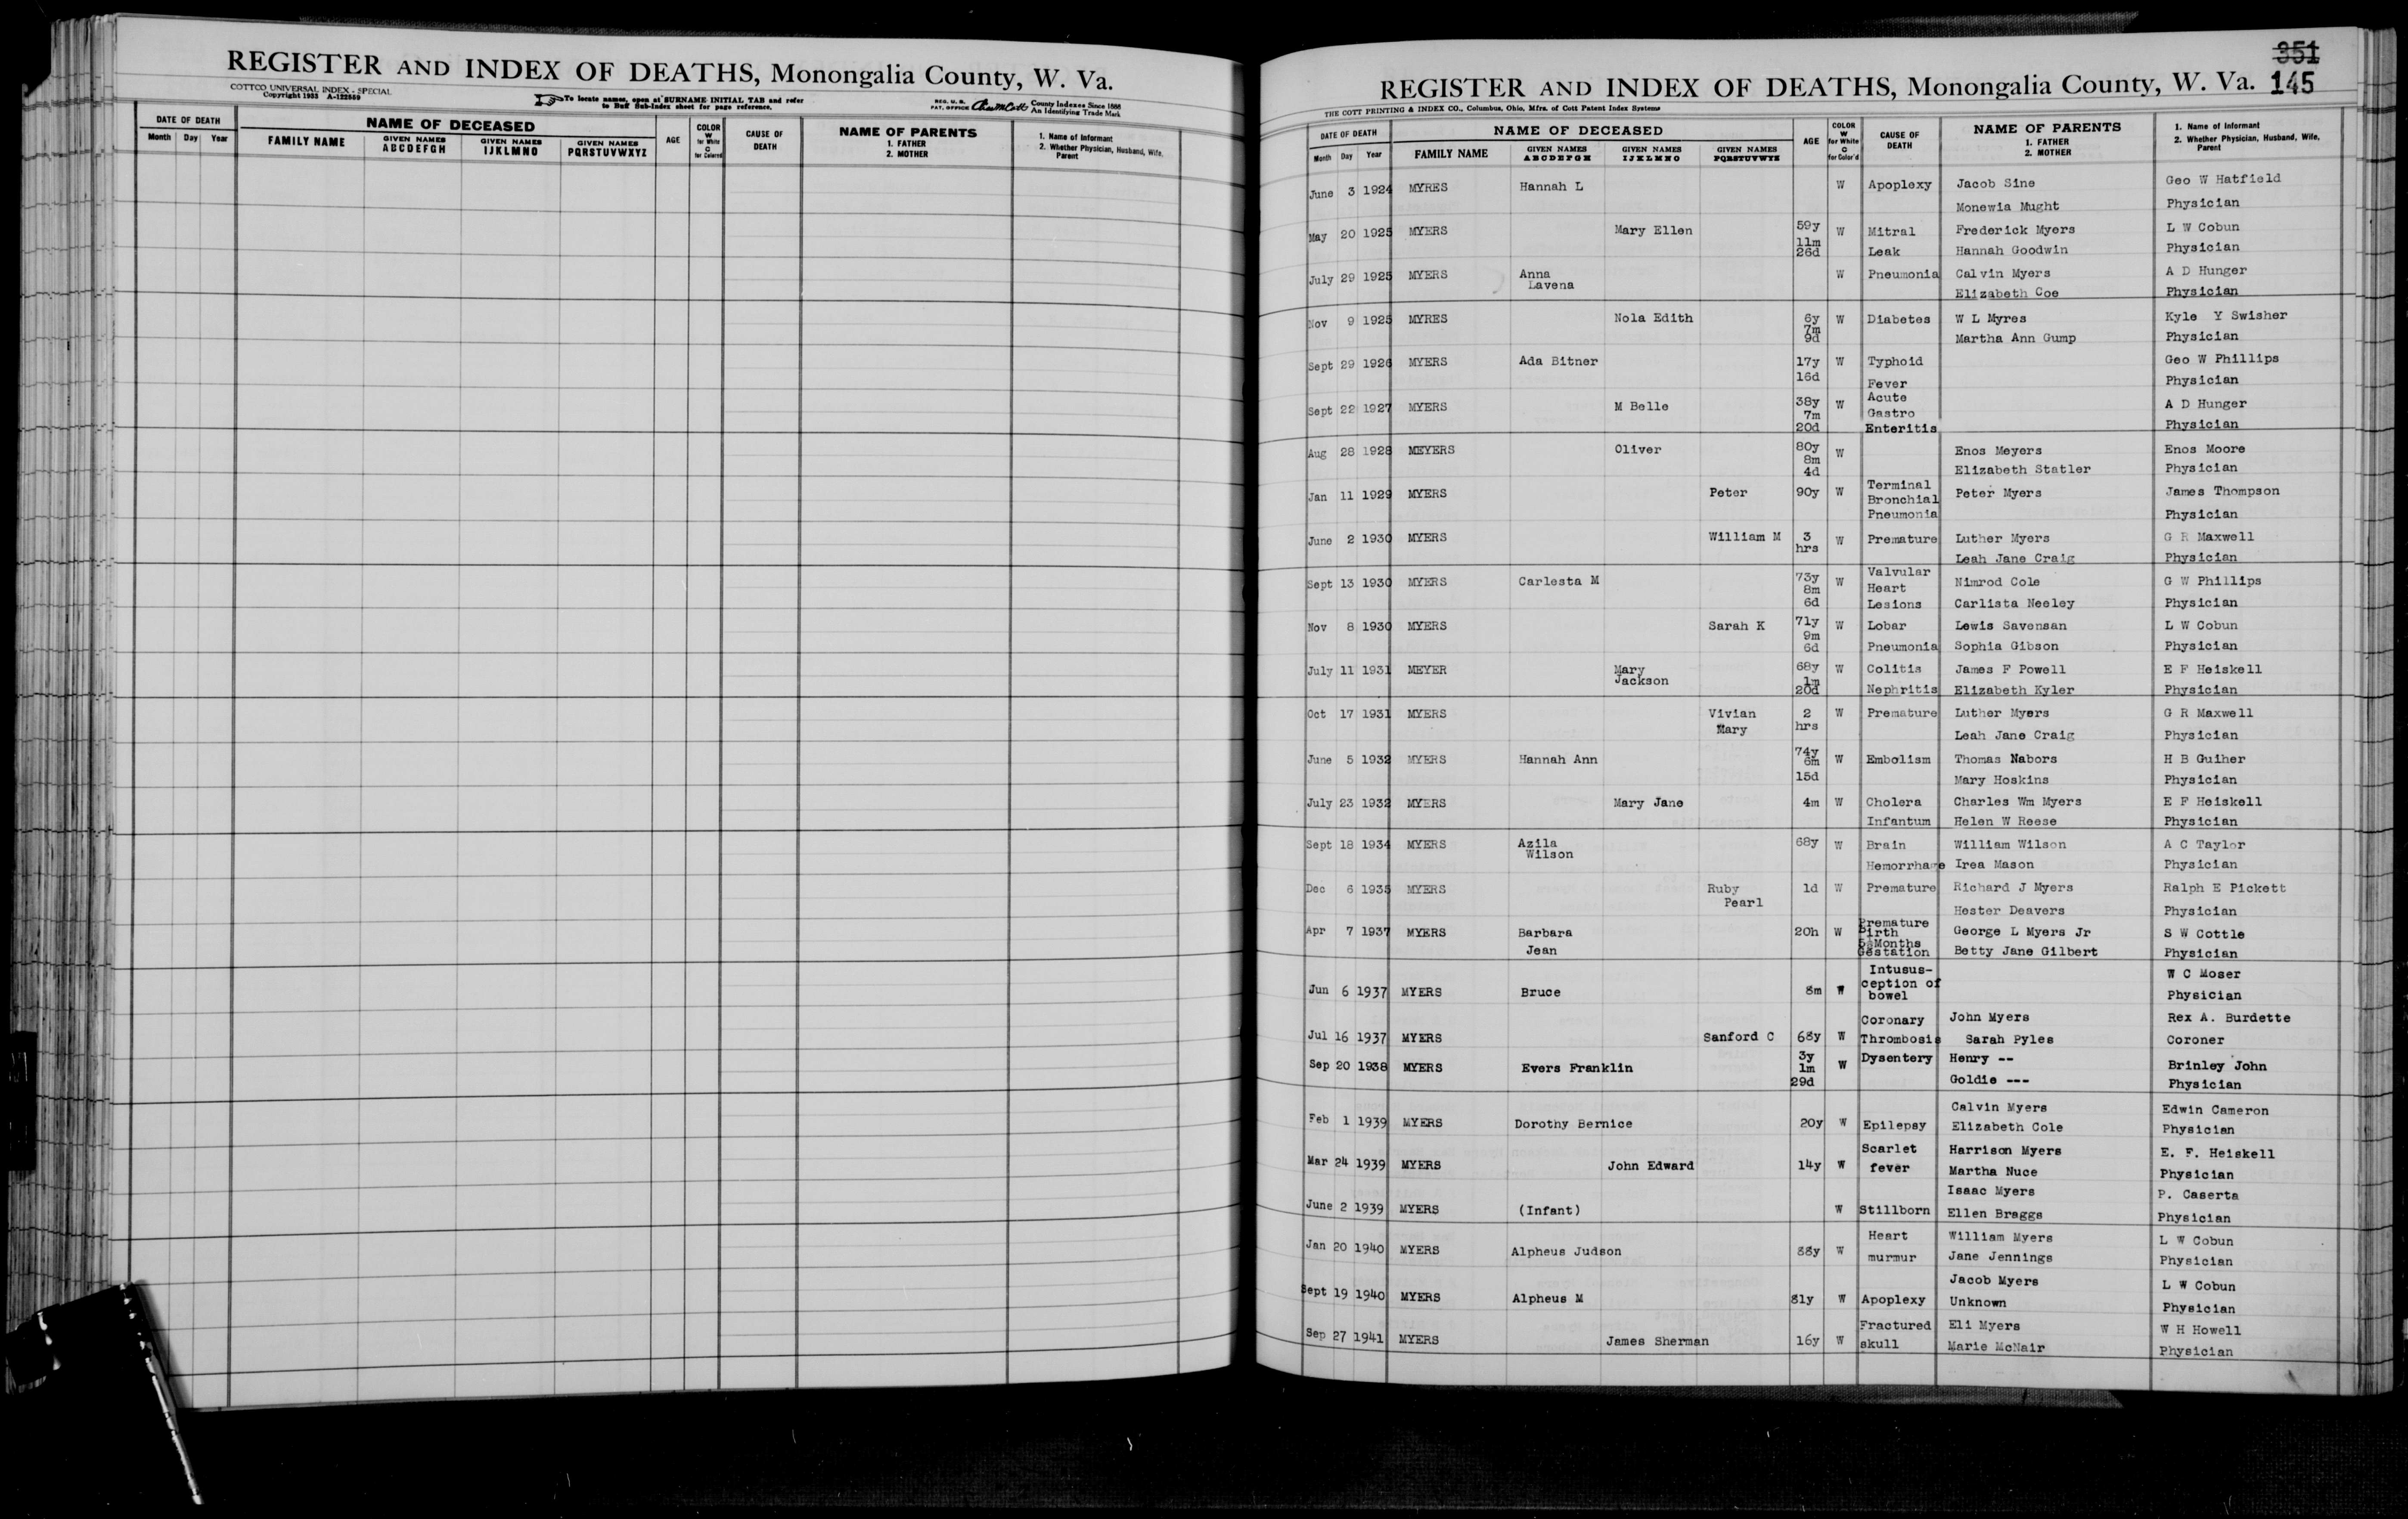 REGISTER AND INDEX OF DEATHS, Monongalia County, W. Va.
COTTCO UNIVERSAL INDEX - SPECIAL
Copyright 1933 A-122559
To locate names, open at SURNAME INITIAL TAB and refer
to Buff Sub-Index sheet for page reference.
REG. U. S.
PAT. OFFICE
County Indexes Since 1888
An Identifying Trade Mark
DATE OF DEATH
Month Day Year
NAME OF DECEASED
FAMILY NAME
GIVEN NAMES
ABCDEFGH
GIVEN NAMES
IJKLMNO
GIVEN NAMES
PQRSTUVWXYZ
AGE
COLOR
W
for White
C
for Colored
CAUSE OF
DEATH
NAME OF PARENTS
1. FATHER
2. MOTHER
1. Name of Informant
2. Whether Physician, Husband, Wife,
Parent
351
REGISTER AND INDEX OF DEATHS, Monongalia County, W. Va. 145
THE COTT PRINTING & INDEX CO., Columbus, Ohio, Mfrs. of Cott Patent Index Systems
DATE OF DEATH
Month Day Year
NAME OF DECEASED
FAMILY NAME
GIVEN NAMES
ABCDEFGH
GIVEN NAMES
IJKLMNO
GIVEN NAMES
PQRSTUVWXYZ
AGE
COLOR
W
for White
C
for Color'd
CAUSE OF
DEATH
NAME OF PARENTS
1. FATHER
2. MOTHER
1. Name of Informant
2. Whether Physician, Husband, Wife,
Parent
June 3 1924 MYRES Hannah L W Apoplexy Jacob Sine Geo W Hatfield
Monewia Mught Physician
May 20 1925 MYERS Mary Ellen 59y W Mitral Frederick Myers L W Cobun
11m
26d Leak Hannah Goodwin Physician
July 29 1925 MYERS Anna W Pneumonia Calvin Myers A D Hunger
Lavena Elizabeth Coe Physician
Nov 9 1925 MYRES Nola Edith 6y W Diabetes W L Myres Kyle Y Swisher
7m
9d Martha Ann Gump Physician
Sept 29 1926 MYERS Ada Bitner 17y W Typhoid Geo W Phillips
16d Fever Physician
Sept 22 1927 MYERS M Belle 38y W Acute A D Hunger
7m Gastro
20d Enteritis Physician
Aug 28 1928 MEYERS Oliver 80y W Enos Meyers Enos Moore
8m
4d Elizabeth Statler Physician
Jan 11 1929 MYERS Peter 90y W Terminal Peter Myers James Thompson
Bronchial
Pneumonia Physician
June 2 1930 MYERS William M 3 W Premature Luther Myers G R Maxwell
hrs Leah Jane Craig Physician
Sept 13 1930 MYERS Carlesta M 73y W Valvular Nimrod Cole G W Phillips
8m Heart
6d Lesions Carlista Neeley Physician
Nov 8 1930 MYERS Sarah K 71y W Lobar Lewis Savensan L W Cobun
9m
6d Pneumonia Sophia Gibson Physician
July 11 1931 MEYER Mary 68y W Colitis James F Powell E F Heiskell
Jackson 1m
20d Nephritis Elizabeth Kyler Physician
Oct 17 1931 MYERS Vivian 2 W Premature Luther Myers G R Maxwell
Mary hrs Leah Jane Craig Physician
June 5 1932 MYERS Hannah Ann 74y W Embolism Thomas Nabors H B Guiher
6m
15d Mary Hoskins Physician
July 23 1932 MYERS Mary Jane 4m W Cholera Charles Wm Myers E F Heiskell
Infantum Helen W Reese Physician
Sept 18 1934 MYERS Azila 68y W Brain William Wilson A C Taylor
Wilson Hemorrhage Irea Mason Physician
Dec 6 1935 MYERS Ruby 1d W Premature Richard J Myers Ralph E Pickett
Pearl Hester Deavers Physician
Apr 7 1937 MYERS Barbara 20h W Premature George L Myers Jr S W Cottle
Birth
Jean Months
Gestation Betty Jane Gilbert Physician
Intusus- W C Moser
Jun 6 1937 MYERS Bruce 8m W ception of
bowel Physician
Coronary John Myers Rex A. Burdette
Jul 16 1937 MYERS Sanford C 68y W Thrombosis Sarah Pyles Coroner
Sep 20 1938 MYERS Evers Franklin 3y W Dysentery Henry -- Brinley John
1m
29d Goldie --- Physician
Calvin Myers Edwin Cameron
Feb 1 1939 MYERS Dorothy Bernice 20y W Epilepsy Elizabeth Cole Physician
Scarlet Harrison Myers E. F. Heiskell
Mar 24 1939 MYERS John Edward 14y W fever Martha Nuce Physician
Isaac Myers P. Caserta
June 2 1939 MYERS (Infant) W Stillborn Ellen Braggs Physician
Heart William Myers L W Cobun
Jan 20 1940 MYERS Alpheus Judson 88y W murmur Jane Jennings Physician
Jacob Myers L W Cobun
Sept 19 1940 MYERS Alpheus M 81y W Apoplexy Unknown Physician
Fractured Eli Myers W H Howell
Sep 27 1941 MYERS James Sherman 16y W skull Marie McNair Physician